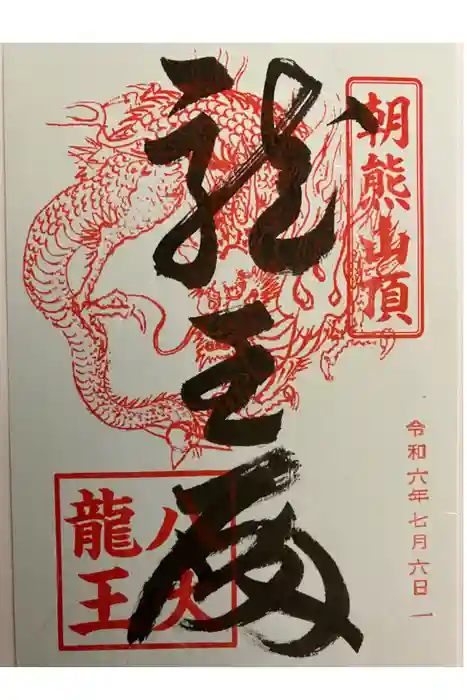 朝熊山頂
令和六年七月六日
龍王殿
八大
龍王